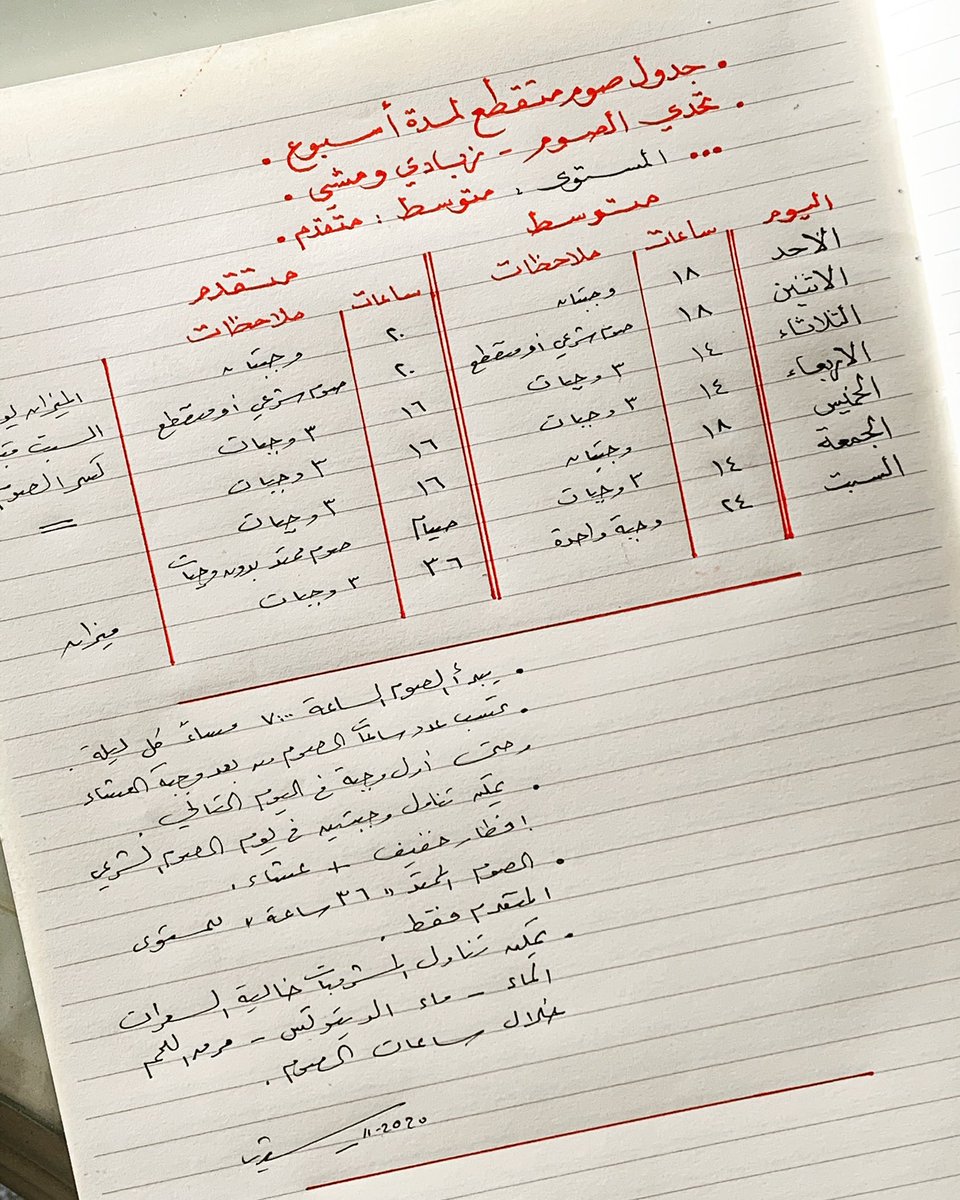 • جدول صوم متقطع لمدة أسبوع .
• تحدي الصوم - زبادي ومشي .
••• المستوى : متوسط : متقدم .
متوسط متقدم
اليوم ساعات ملاحظات ساعات ملاحظات
الأحد ١٨ وجبتان ٢٠ وجبتان
الاثنين ١٨ صوم شرعي أو متقطع ٢٠ صوم شرعي أو متقطع
الثلاثاء ١٤ ٣ وجبات ١٦ ٣ وجبات
الأربعاء ١٤ ٣ وجبات ١٦ ٣ وجبات
الخميس ١٨ وجبتان ١٦ ٣ وجبات
الجمعة ١٤ ٣ وجبات صيام صوم ممتد بدون وجبات
السبت ٢٤ وجبة واحدة ٣٦ ٣ وجبات ميزان
الميزان
السبت
كسر الصوم
• يبدأ الصوم الساعة ٧:٠٠ مساءً كل ليلة .
• تحتسب عدد ساعات الصوم من بعد وجبة العشاء
وحتى أول وجبة في اليوم التالي .
• يمكن تناول وجبتين في يوم الصوم الشرعي
افطار خفيف + عشاء .
• الصوم الممتد " ٣٦ ساعة " للمستوى
المتقدم فقط .
• يمكن تناول المشروبات خالية السعرات
الماء - ماء الديتوكس - مرق اللحم
خلال ساعات الصوم .
11-2020